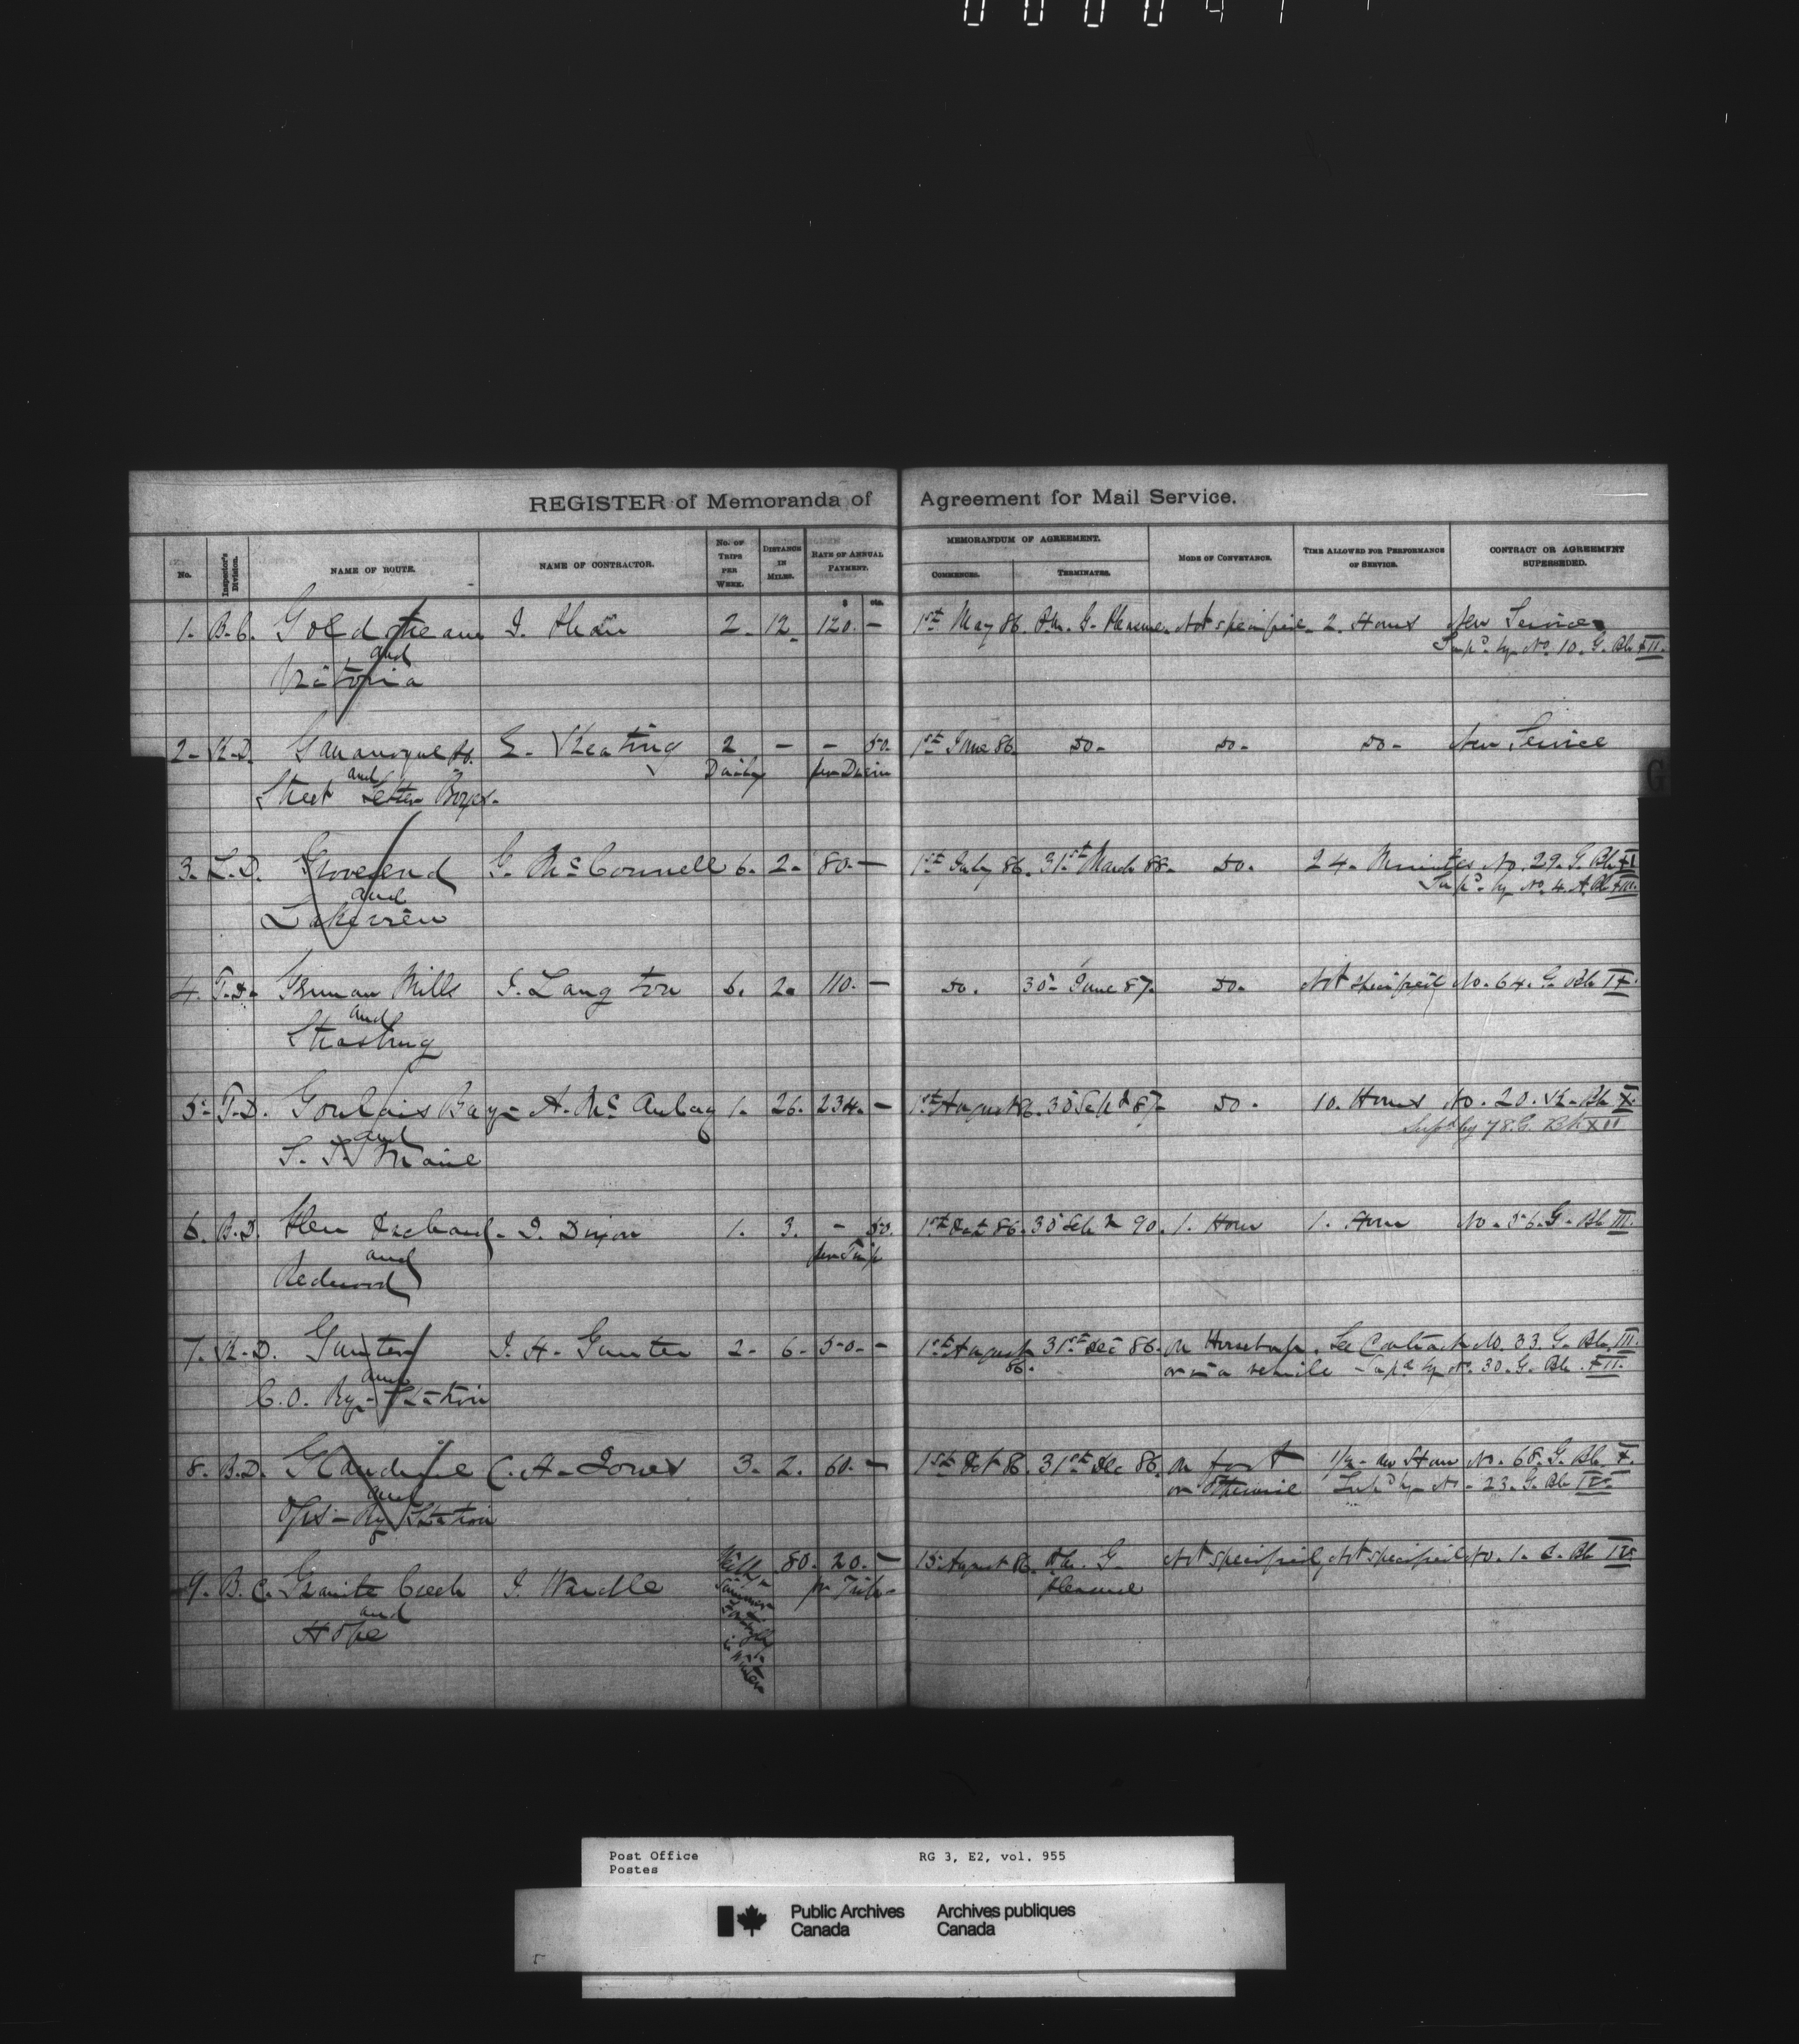 REGISTER of Memoranda of Agreement for Mail Service.
No. Inspector's Division. NAME OF ROUTE. NAME OF CONTRACTOR. No. OF TRIPS PER WEEK. DISTANCE IN MILES. RATE OF ANNUAL PAYMENT. MEMORANDUM OF AGREEMENT. COMMENCES. TERMINATES. MODE OF CONVEYANCE. TIME ALLOWED FOR PERFORMANCE OF SERVICE. CONTRACT OR AGREEMENT SUPERSEDED.
$ cts.
1. B.C. Goldstream 2. 12. 120. — 1st May 86. P.M. G. Pleasure. Not specified. 2. Hours New Service
and Supd. by No. 10. G. Bk XII.
Victoria
2. K.D. Gananoque P.O. E. Keating 2 — — 50. 1st June 86. Do. Do. Do. New Service
and Daily per Diem
Street Letter Boxes.
G
3. L.D. Grovesend G. McConnell 6. 2. 80. — 1st July 86. 31st March 88. Do. 24. Minutes No. 29. G. Bk XI
and Supd. by No. 4. A. Bk XIII.
Lakeview
4. T.D. German Mills J. Langton 6. 2. 110. — Do. 30 June 87. Do. Not specified No. 64. G. Bk IX.
and
5. T.D. Goulais Bay A. McAulay 1. 26. 234. — 1st August 86. 30 Sept 87. Do. 10. Hours No. 20. K. Bk X.
and Supd by 78. G. Bk XII
S. S. Marie
6. B.D. Glen Orchard J. Dixon 1. 3. — 50. 1st Oct 86. 30 Sept 90. 1. Hour 1. Hour No. 56. G. Bk III.
and per Trip
Redwood
7. K.D. Gunter J. H. Gunter 2. 6. 50. — 1st August 31st Dec 86. On Horseback See Contract No. 33. G. Bk III.
and 86. or in a vehicle Supd. by No. 30. G. Bk XII.
C.O. Ry. Station
8. B.D. C. A. Jones 3. 2. 60. — 1st Oct 86. 31st Dec 86. On foot 1/2 an Hour No. 68. G. Bk X.
and or otherwise Supd by No. 23. G. Bk
Opps. Ry Station
9. B.C. Granite Creek J. Wardle 80. 20. — 15 August 86. P.M. G. Not specified Not specified No. 1. C. Bk
and in Winter per Trip. Pleasure
Hope
Post Office RG 3, E2, vol. 955
Postes
Public Archives Archives publiques
Canada Canada